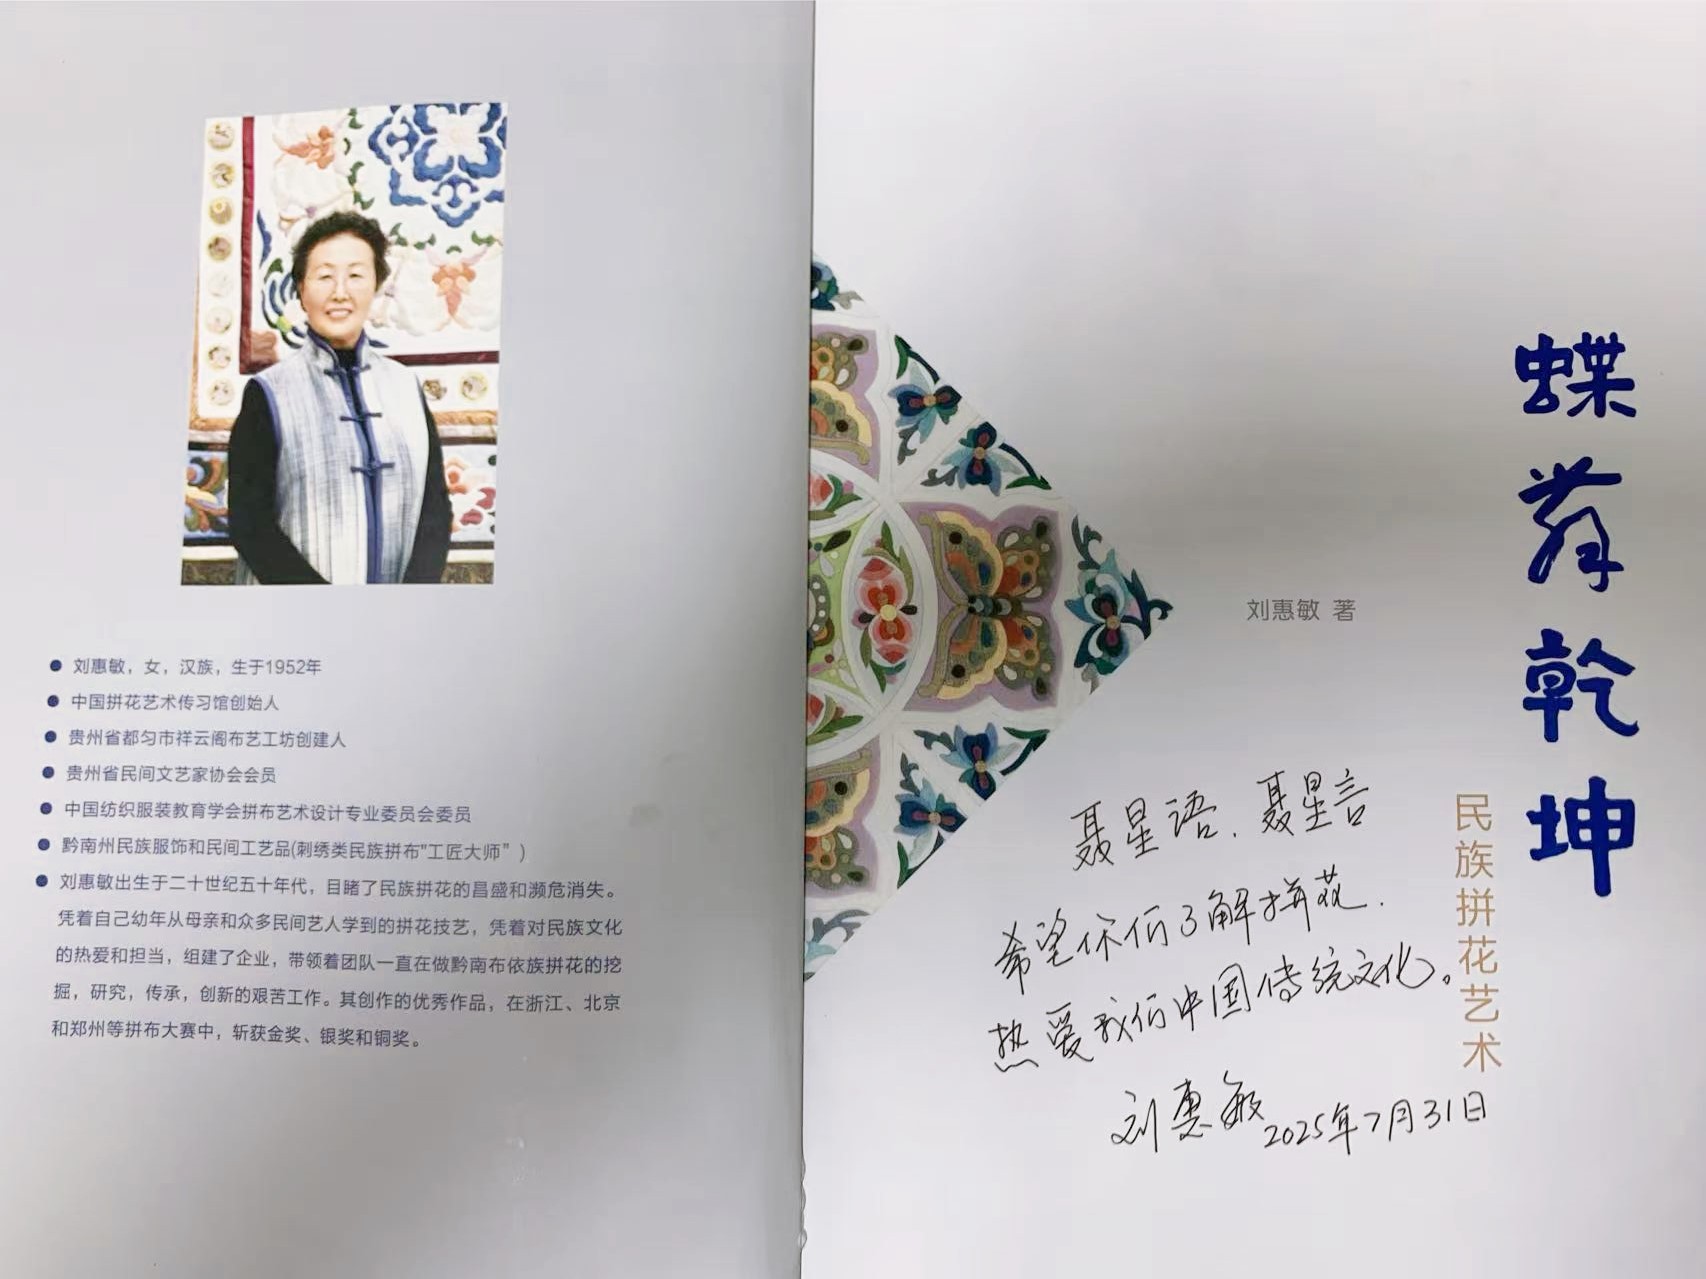 刘惠敏，女，汉族，生于1952年
中国拼花艺术传习馆创始人
贵州省都匀市祥云阁布艺工坊创建人
贵州省民间文艺家协会会员
中国纺织服装教育学会拼布艺术设计专业委员会委员
黔南州民族服饰和民间工艺品(刺绣类民族拼布"工匠大师"）
刘惠敏出生于二十世纪五十年代，目睹了民族拼花的昌盛和濒危消失。
凭着自己幼年从母亲和众多民间艺人学到的拼花技艺，凭着对民族文化
的热爱和担当，组建了企业，带领着团队一直在做黔南布依族拼花的挖
掘，研究，传承，创新的艰苦工作。其创作的优秀作品，在浙江、北京
和郑州等拼布大赛中，斩获金奖、银奖和铜奖。
蝶舞乾坤
民族拼花艺术
刘惠敏 著
聂星语、聂星言
希望你们了解拼花.
热爱我们中国传统文化。
刘惠敏 2025年7月31日